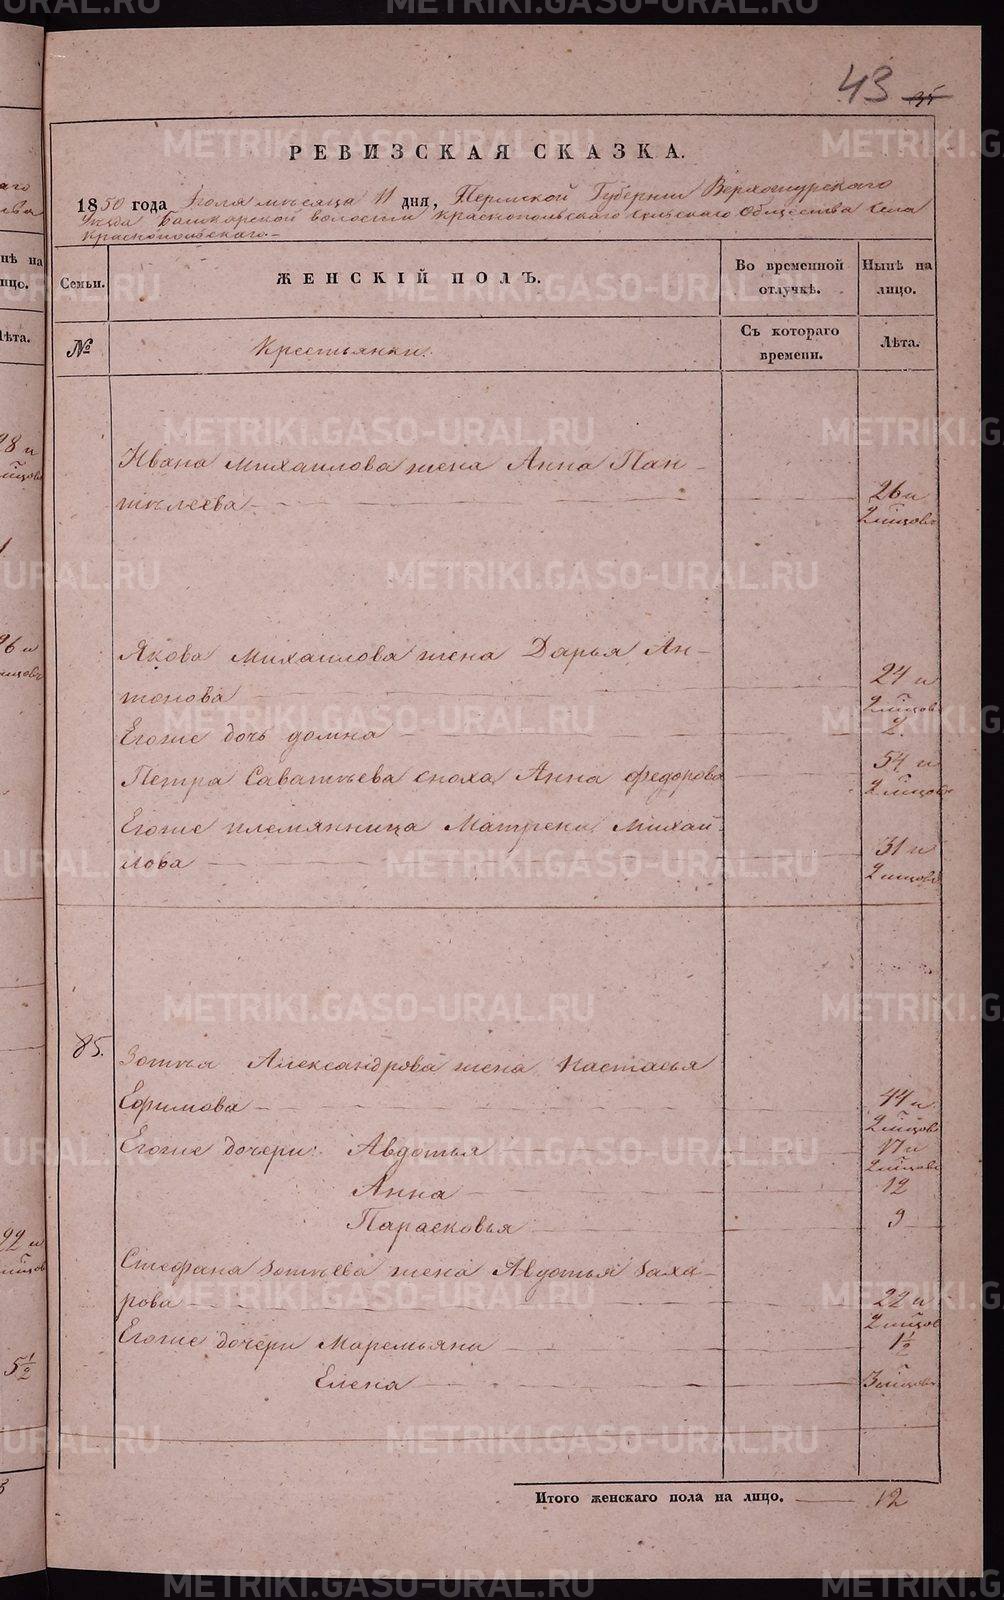 43 35
РЕВИЗСКАЯ СКАЗКА.
1850 года Июля мѣсяца 11 дня, Пермской Губернии Верхотурскаго
Уѣзда Башкарской волости Краснопольскаго сельскаго Общества села
Краснопольскаго.
Семьи.
ЖЕНСКІЙ ПОЛЪ.
Во временной отлучкѣ.
Нынѣ на лицо.
№
Крестьянки.
Съ котораго времени.
Лѣта.
Ивана Михаилова жена Анна Пан-
тѣлеева 26 и
2 мѣсцовъ
Якова Михаилова жена Дарья Ан-
тонова 24 и
2 мѣсцовъ
Егоже дочь домна 2.
Петра Саватѣева сноха Анна федорова 54 и
2 мѣсцовъ
Егоже племянница Матрена Михай-
лова 31 и
2 мѣсцовъ
85.
Зотѣя Александрова жена Настасья
Ефимова 44 и
2 мѣсцовъ
Егоже дочери: Авдотья 17 и
2 мѣсцовъ
Анна 12
Парасковья 9
Стефана Зотѣева жена Авдотья Заха-
рова 22 и
2 мѣсцовъ
Егоже дочери Маремьяна 1½
Елена 3 мѣсцовъ
Итого женскаго пола на лицо. 12
METRIKI.GASO-URAL.RU